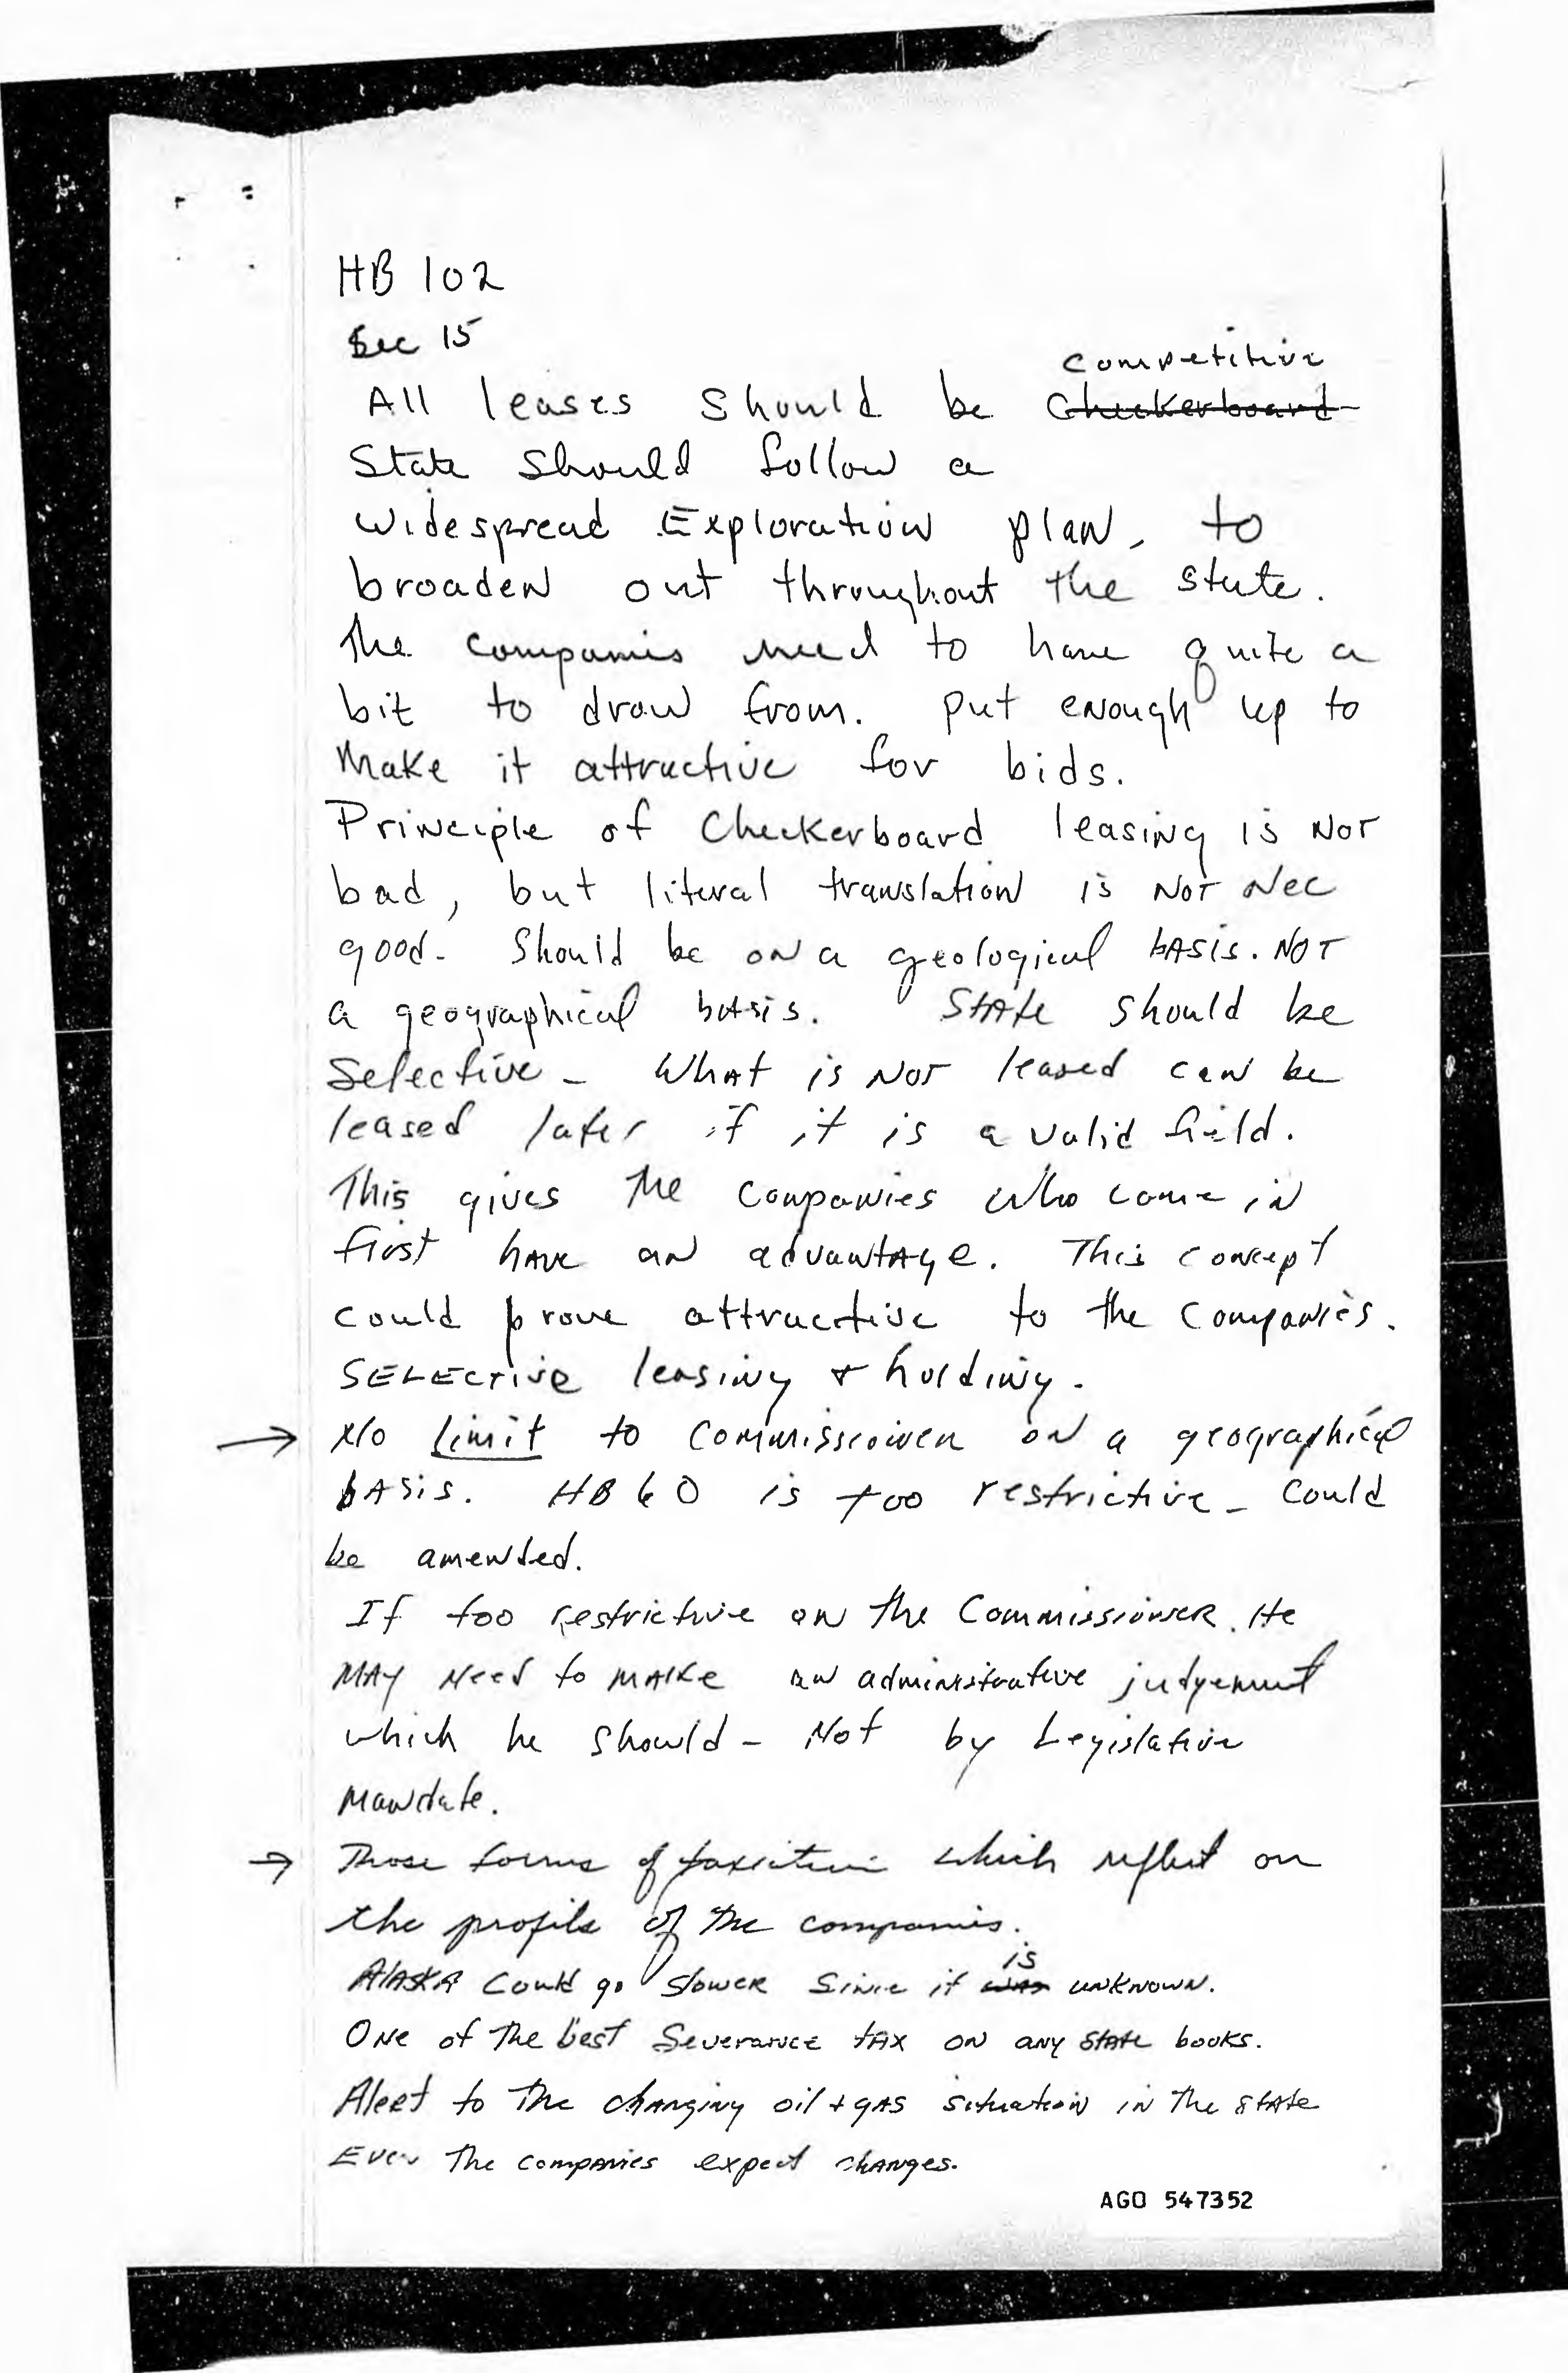 HB 102
Sec 15
competitive
All leases should be ~~Checkerboard~~
State should follow a
widespread Exploration plan, to
broaden out throughout the state.
The companies need to have quite a
bit to draw from. put enough up to
make it attractive for bids.
Principle of Checkerboard leasing is NOT
bad, but literal translation is NOT Nec
good. Should be on a geological basis. NOT
a geographical basis. State should be
Selective - What is NOT leased can be
leased later if it is a valid field.
This gives the companies who come in
first have an advantage. This concept
could prove attractive to the companies.
SELECTive leasing & holding.
→ No limit to Commissioner on a geographical
basis. HB 60 is too restrictive - Could
be amended.
If too restrictive on the Commissioner. He
MAY Need to make an administrative judgement
which he should - Not by Legislative
Mandate.
→ Those forms of taxation which reflect on
the profits of the companies.
is
Alaska could go slower since it ~~was~~ unknown.
One of the best Severance tax on any state books.
Alert to the changing oil + gas situation in the state
Even the companies expect changes.
AGO 547352